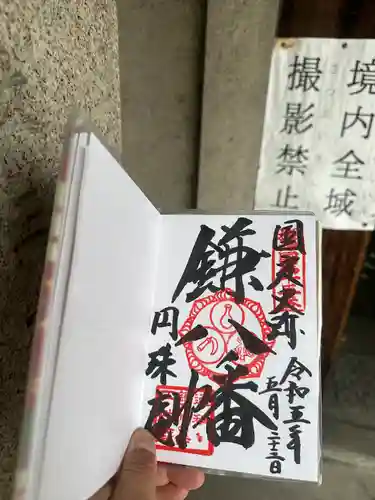 境内全域
撮影禁止
国定史跡
鎌八幡
円珠
令和五年
五月二十三日